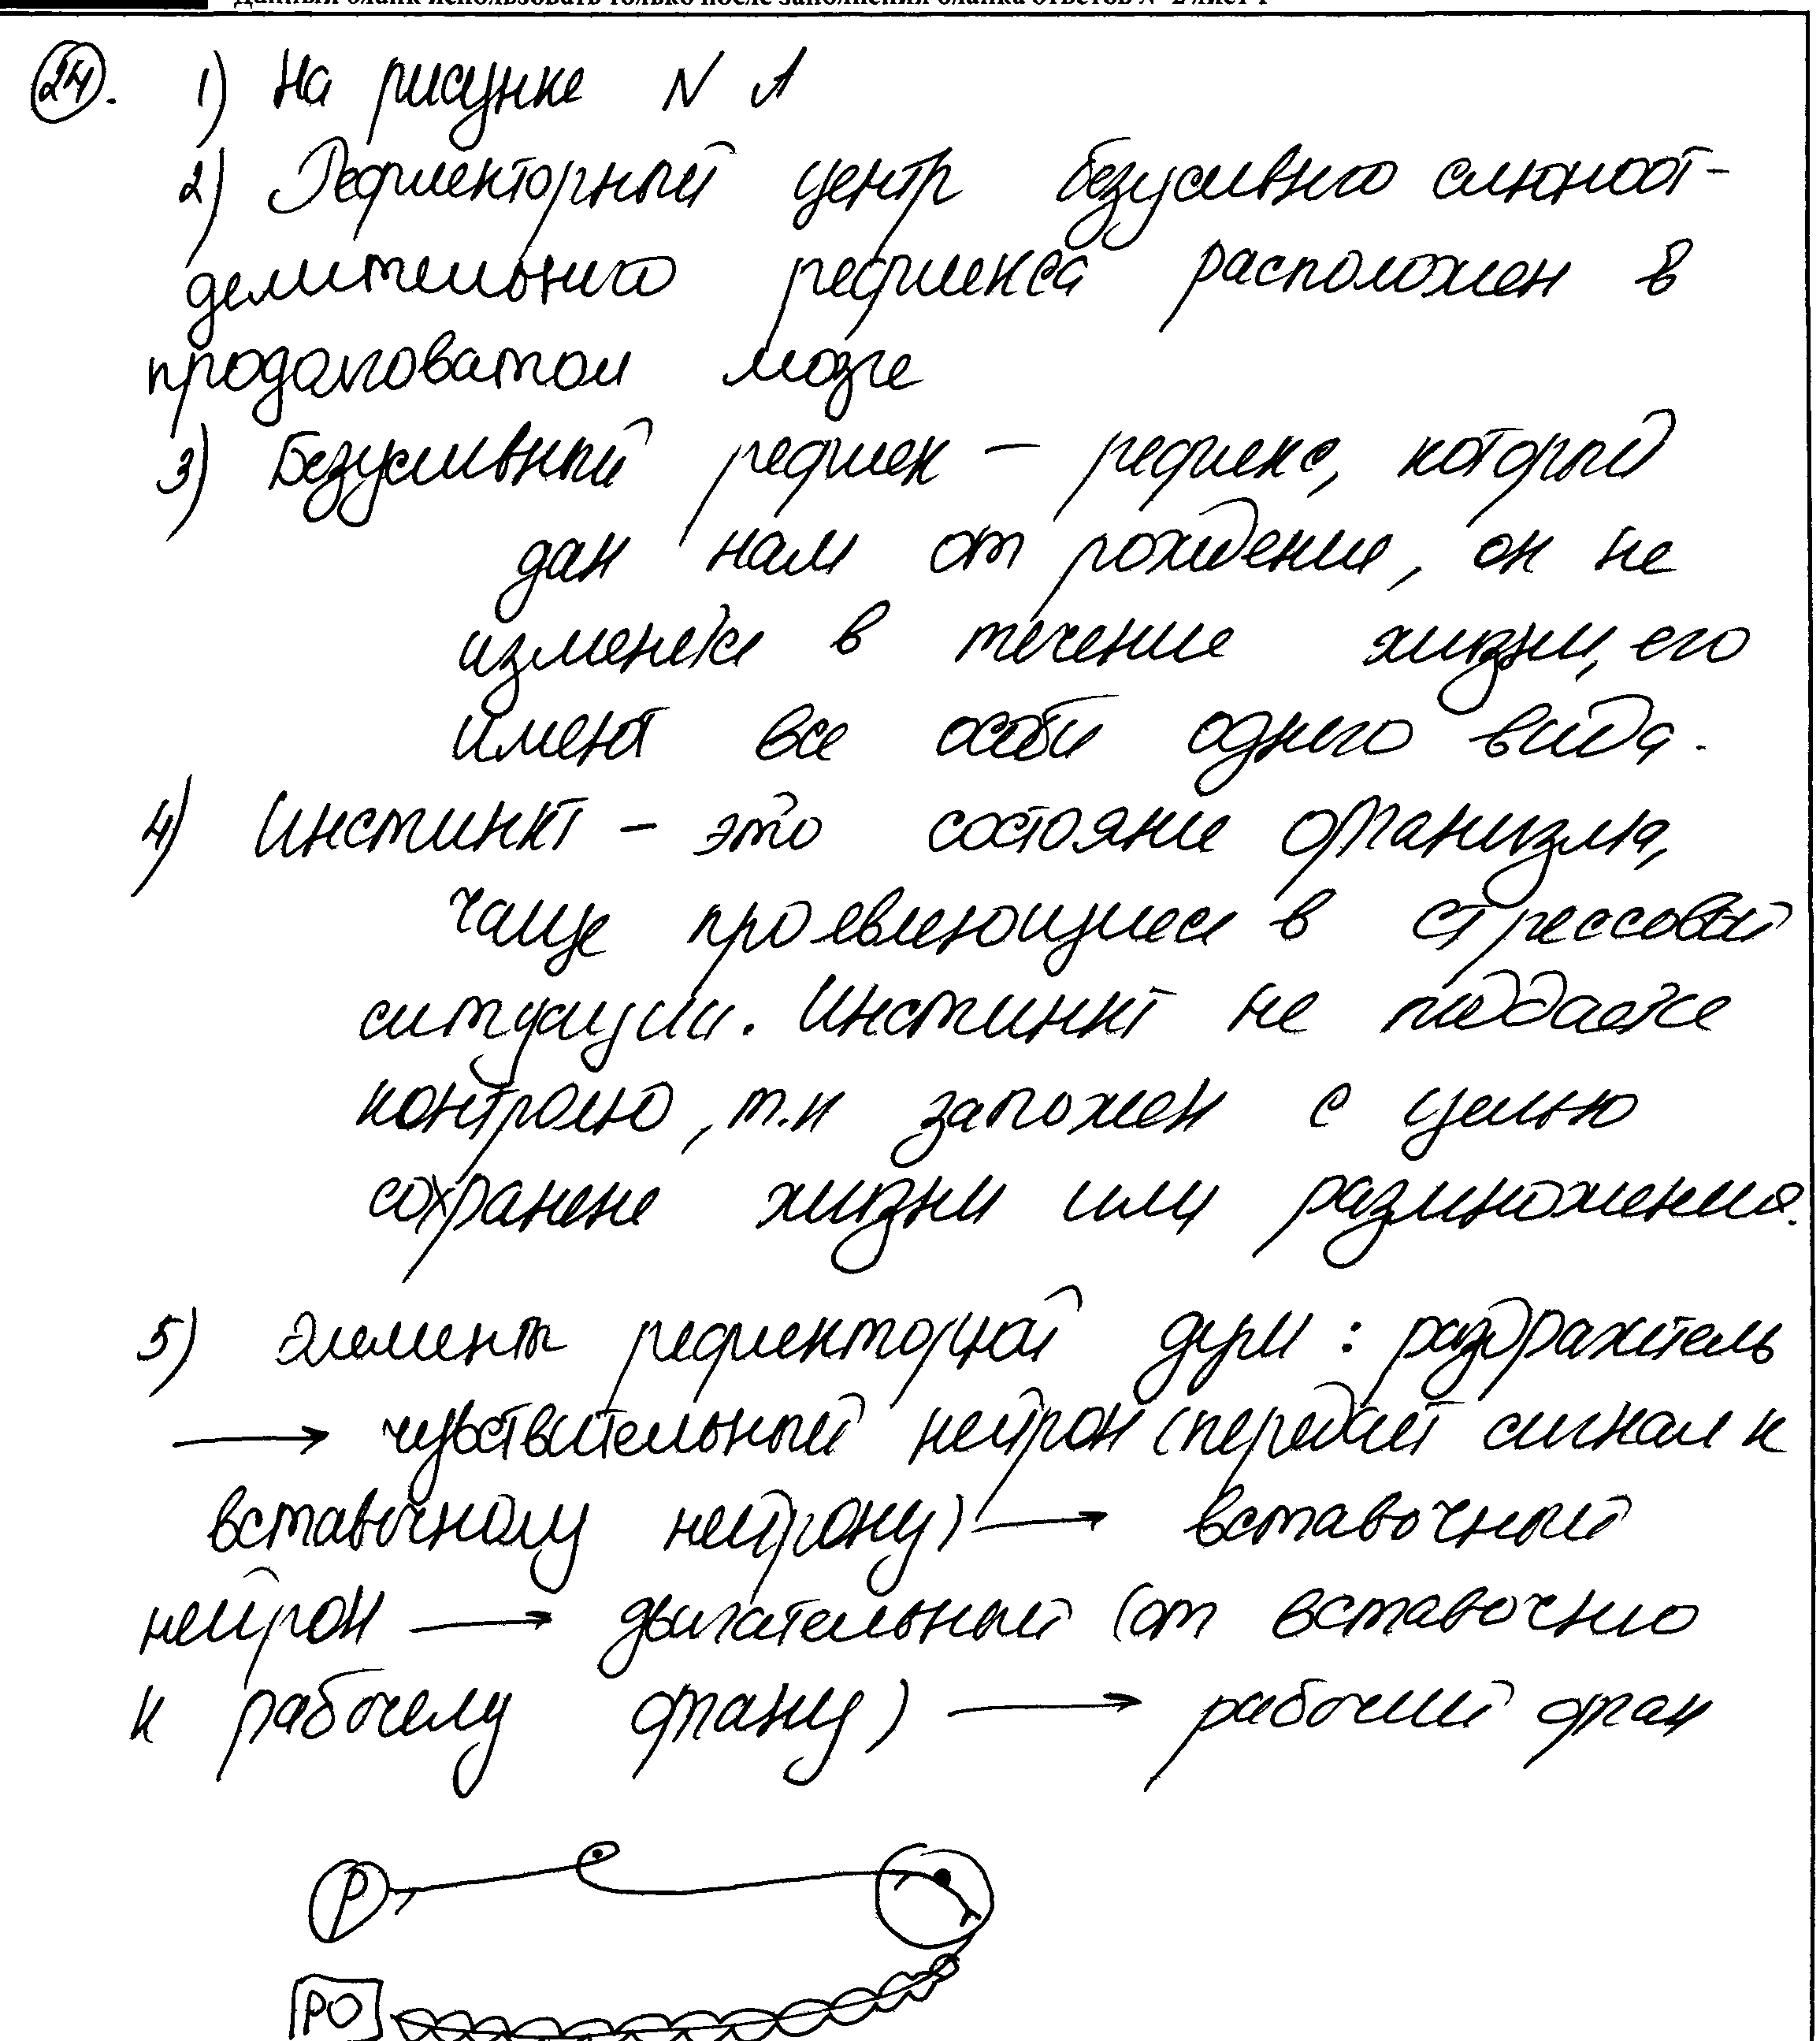 Данный бланк использовать только после заполнения бланка ответов № 2 лист 1
24. 1) На рисунке N 1
2) Рефлекторный центр безусивного слюноот-
делительного рефлекса расположен в
продолговатом мозге
3) Безусливный рефлек – рефлекс, который
дан нам от рождение, он не
изменется в течение жизни, его
имеют все особи одного вида.
4) Инстинкт – это состояние организма,
чаще проявляющиеся в стрессовый
ситуации. Инстинкт не подается
контролю, т.к заложен с целью
сохранене жизни или размножения.
5) Элементы рефлекторной дуги : раздражитель
→ чувствительный нейрон (передает сигнал к
вставочному нейрону) → вставочный
нейрон → двигательный (от вставочно
к рабочему органу) → рабочий орган
Р
РО